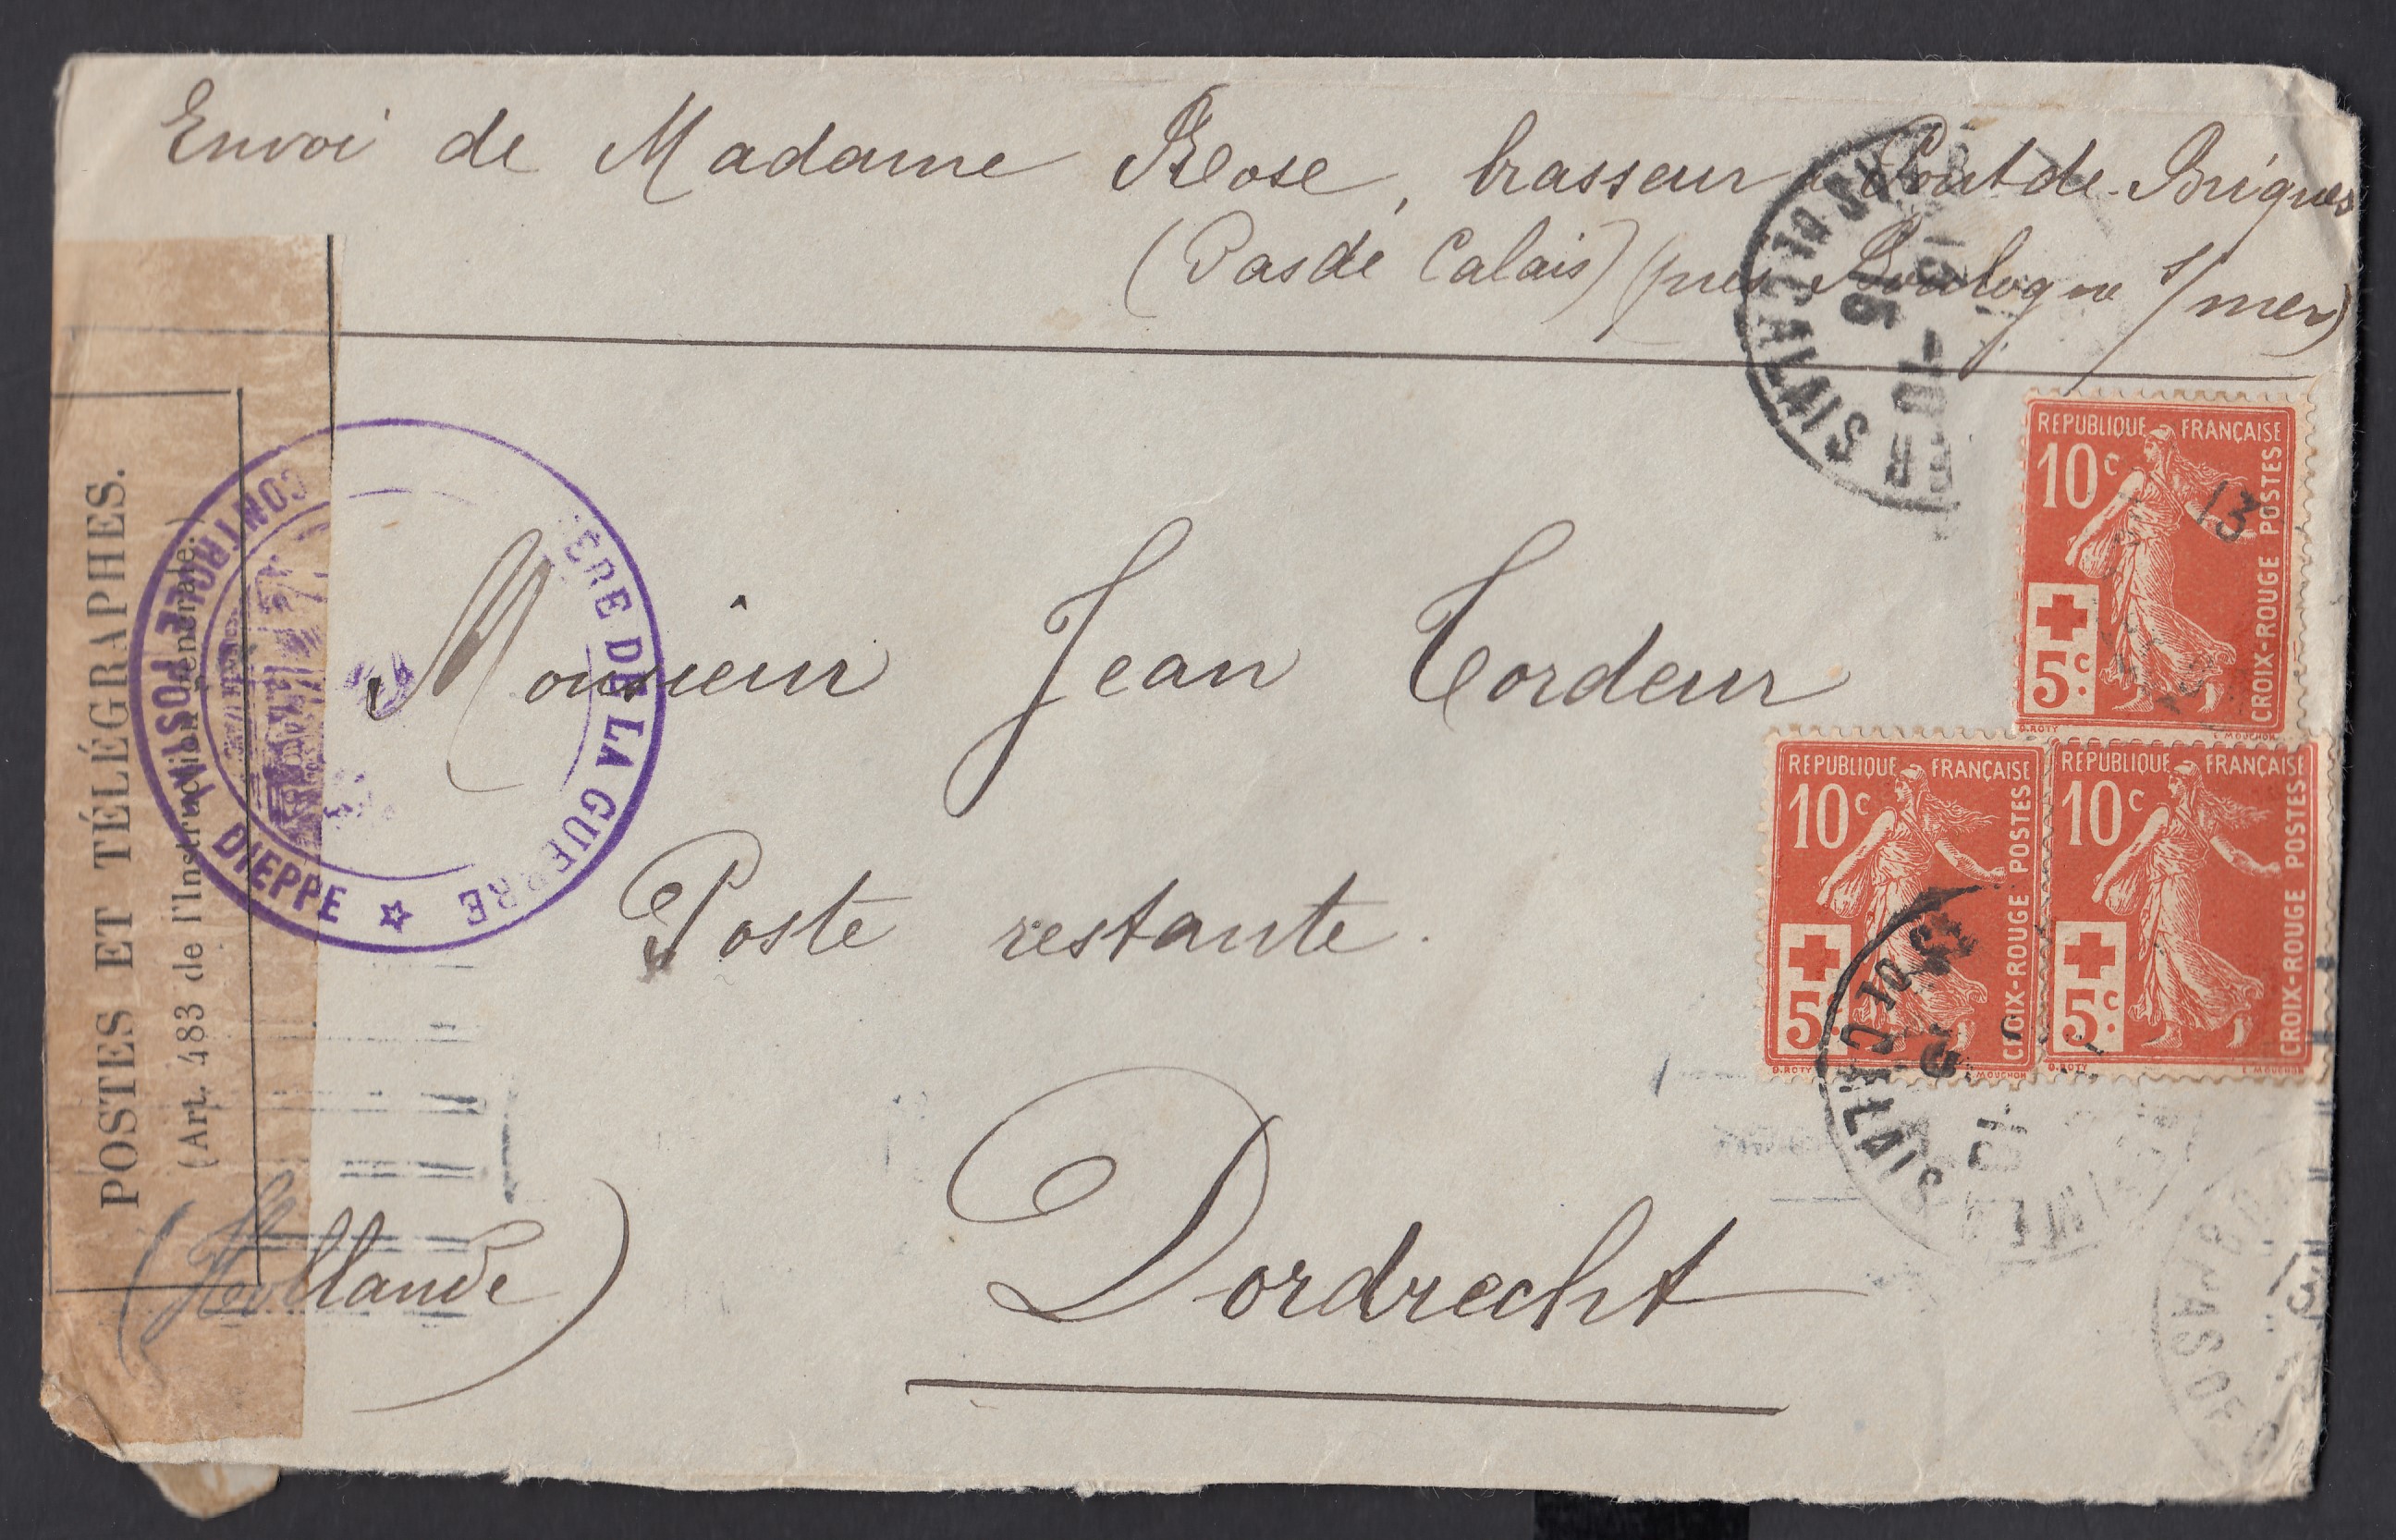 Envoi de Madame Rose, brasseur à Pont de Briques
(Pas de Calais) (près Boulogne s/mer)
PAS DE CALAIS
-10
15
REPUBLIQUE FRANÇAISE
10c
POSTES
CROIX-ROUGE
5c.
O.ROTY
L.MOUCHON
13
POSTES ET TÉLÉGRAPHES.
(Art. 483 de l'Instruction générale.)
CONTROLE POSTAL DIEPPE
ERE DE LA GUERRE
Monsieur Jean Tordeur
REPUBLIQUE FRANÇAISE
10c
POSTES
CROIX-ROUGE
5c.
O.ROTY
MOUCHON
REPUBLIQUE FRANÇAISE
10c
POSTES
CROIX-ROUGE
5c.
O.ROTY
L.MOUCHON
Poste restante.
CALAIS
-10
Dordrecht
(Hollande)
PAS DE